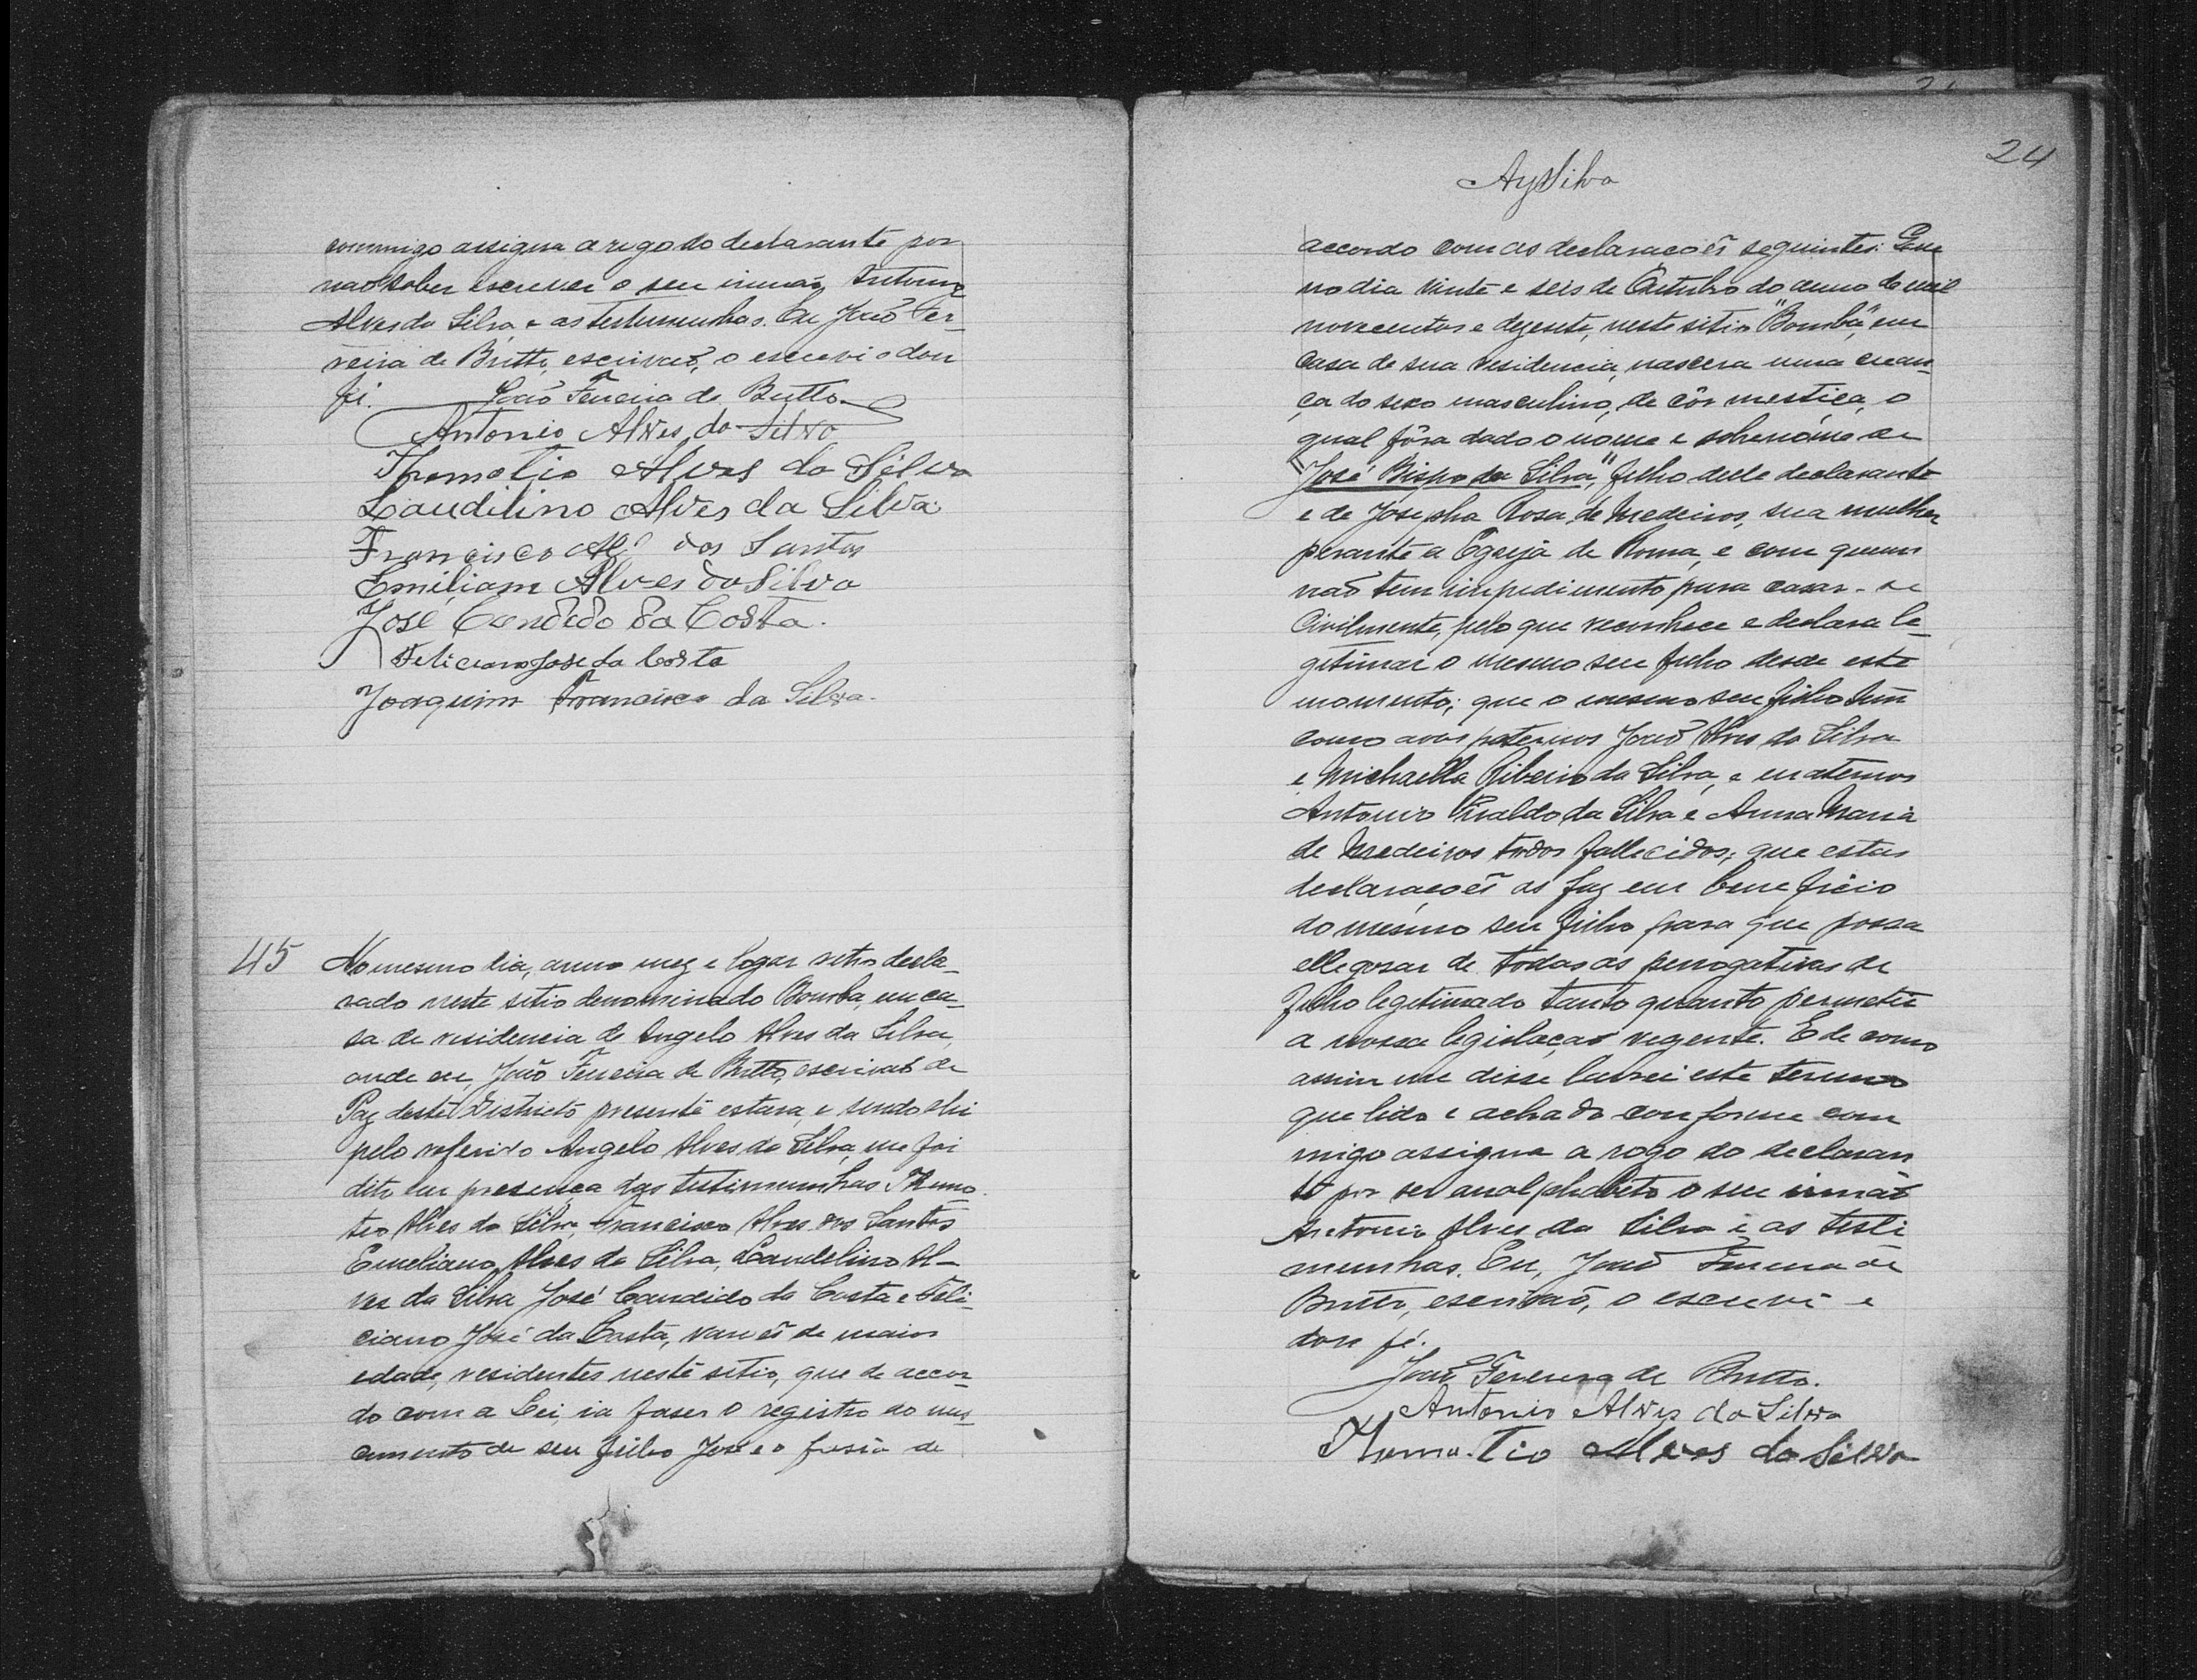 commigo assigna a rogo do declarante por
não saber escrever o seu irmaõ Antonio
Alves da Silva e as testemunhas. Eu João Fer-
reira de Britto, escrivaõ, o escrevi e dou
fé. João Ferreira de Britto
Antonio Alves da Silva
Themotio Alves da Silva
Laudilino Alves da Silva
Francisco Al. dos Santos
Emiliam Alves da Silva
José Candido da Costa.
Feliciano José da Costa
Joaquim Francisco da Silva.
45 No mesmo dia, anno mez e logar retro decla-
rado neste sitio denominado Bomba, em ca-
sa de residencia de Angelo Alves da Silva,
onde eu, João Ferreira de Britto, escrivaõ de
Paz deste Districto presente estava, e sendo ahi
pelo referido Angelo Alves da Silva, me foi
dito em presença das testimunhas Themo-
tio Alves da Silva, Francisco Alves dos Santos
Emeliano Alves da Silva, Laudelino Al-
ves da Silva José Candido da Costa e Feli-
ciano José da Costa, varoẽs de maior
edade, residentes neste sitio, que de accor-
do com a Lei, ia faser o registro do nas-
cimento de seu filho José e o fasia de
24
AySilva
accordo com as declaracoẽs seguintes: Que
no dia vinte e seis de Outubro do anno de mil
novecentos e dezesete, neste sitio "Bomba", em
casa de sua residencia, nascera uma crean-
ça do sexo masculino, de côr mestiça, o
qual fôra dado o nome e sobrenome de
"José Bispo da Silva", filho delle declarante
e de Josepha Rosa de Medeiros, sua mulher
perante a Egreja de Roma, e com quem
naõ tem impedimento para casar-se
Civilmente, pelo que reconhece e declara le-
gitimar o mesmo seu filho desde este
momento; que o mesmo seu filho tem
como avós paternos João Alves da Silva
e Michaella Ribeiro da Silva, e maternos
Antonio Vivaldo da Silva e Anna Maria
de Medeiros todos fallecidos; que estas
declaracoẽs as faz em beneficio
do mesmo seu filho para que possa
elle gosar de todas as perrogativas de
filho legitimado tanto quanto permetir
a nossa legislaçaõ vegente. E de como
assim me disse lavrei este termo
que lido e achado conforme com
migo assigna a rogo do declaran
te por ser analphabeto o seu irmaõ
Antonio Alves da Silva e as testi
munhas. Eu, João Ferreira de
Britto, escrivaõ, o escrevi e
dou fé.
João Ferreira de Britto.
Antonio Alves da Silva
Themotio Alves da Silva